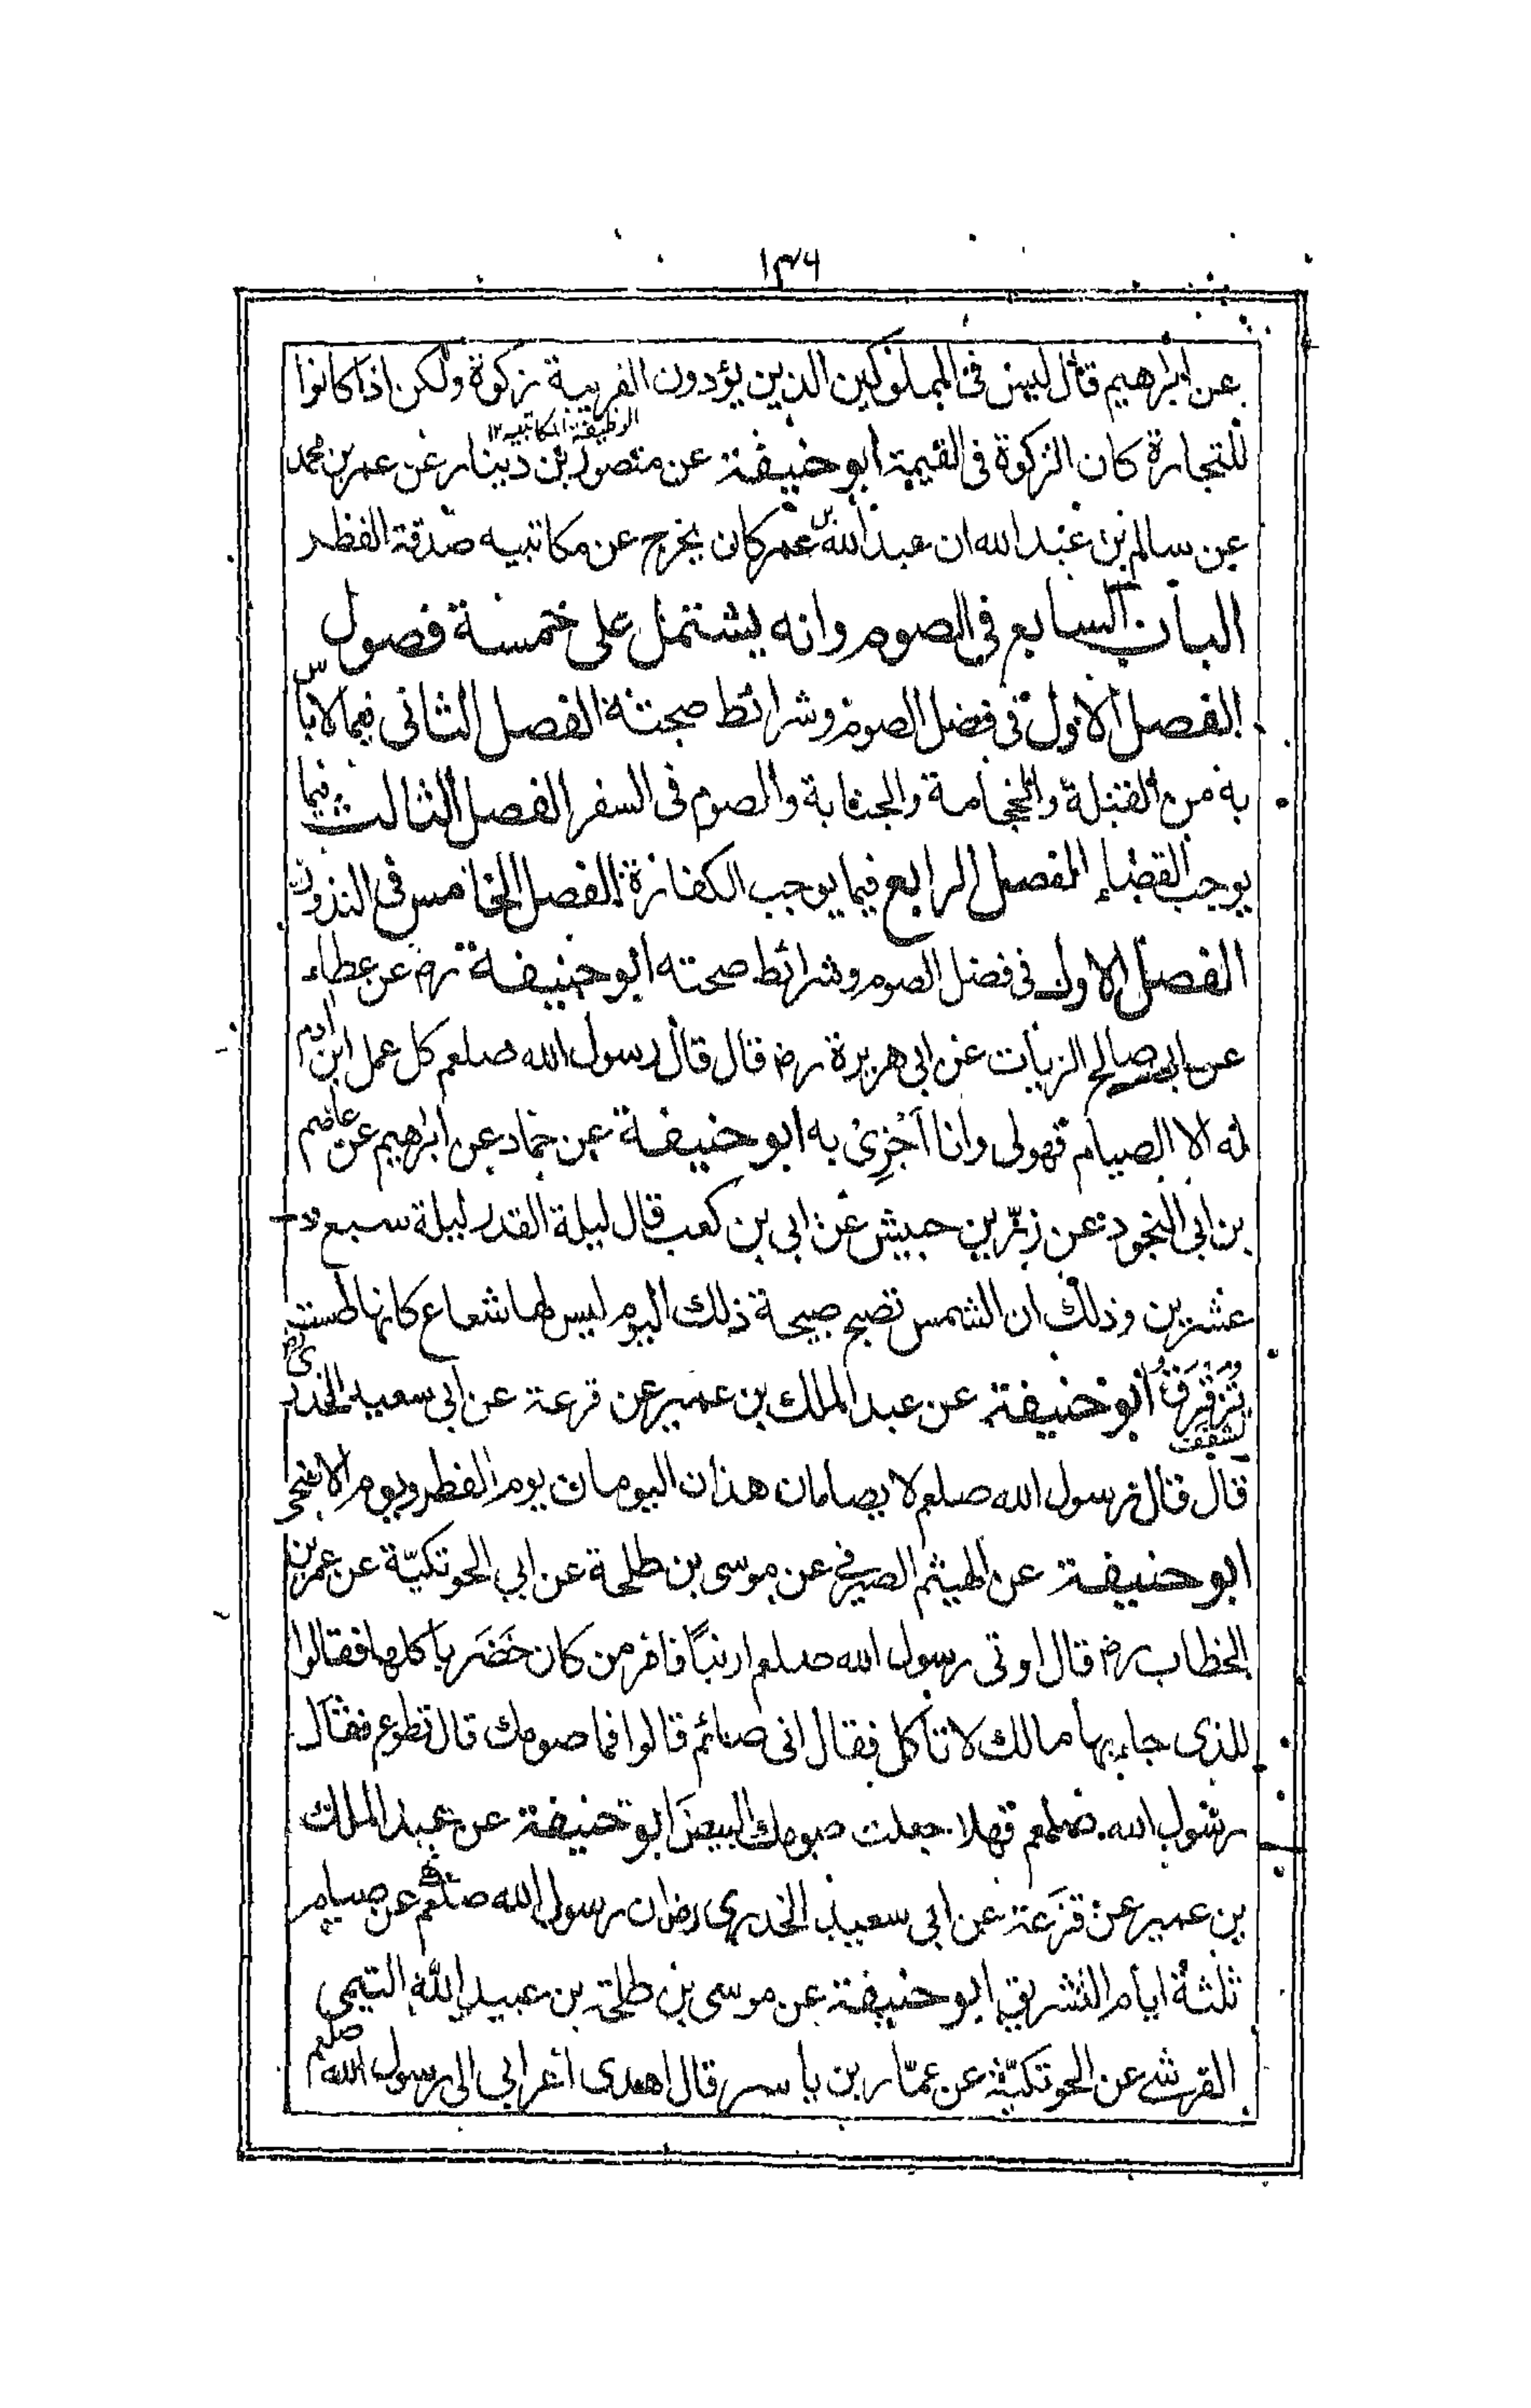 ١٣٦
عن ابراهيم قال ليس في المملوكين الذين يؤدون الضريبة زكوة ولكن اذا كانوا
الوظيفة المكاتبيه ١٢
للتجارة كان الزكوة في القيمة ابو حنيفة عن منصور بن دينار عن عمر بن محمد
عن سالم بن عبد الله ان عبد الله بن عمر كان يخرج عن مكاتبيه صدقة الفطر
الباب السابع في الصوم وانه يشتمل على خمسة فصول
الفصل الاول في فضل الصوم وشرائط صحته الفصل الثاني فيما لا بأس
به من القبلة والحجامة والجنابة والصوم في السفر الفصل الثالث فيما
يوجب القضاء الفصل الرابع فيما يوجب الكفارة الفصل الخامس في النذور
الفصل الاول في فضل الصوم وشرائط صحته ابو حنيفة رح عن عطاء
عن ابي صالح الزيات عن ابي هريرة رض قال قال رسول الله صلعم كل عمل ابن آدم
له الا الصيام فهو لي وانا اَجْزِىْ به ابو حنيفة عن حماد عن ابرهيم عن عاصم
بن ابي النجود عن زِرّ بن حبيش عن ابي بن كعب قال ليلة القدر ليلة سبع و
عشرين وذلك ان الشمس تصبح صبيحة ذلك اليوم ليس لها شعاع كانها طست
تُرَقْرَقُ ابو حنيفة عن عبد الملك بن عمير عن قزعة عن ابي سعيد الخدرى رض
قال قال رسول الله صلعم لا يصامان هذان اليومان يوم الفطر ويوم الاضحى
ابو حنيفة عن الهيثم الصيرفي عن موسى بن طلحة عن ابي الحوتكيّة عن عمر بن
الخطاب رض قال اوتى رسول الله صلعم ارنبًا فامر من كان حَضَر باكلها فقالوا
للذى جاء بها مالك لا تأكل فقال انى صائم قالوا فما صومك قال تطوع فقال
رسول الله صلعم فهلا جعلت صومك البيض ابو حنيفة عن عبد الملك
بن عمير عن قَزَعة عن ابي سعيد الخدري رض ان رسول الله صلعم نهى عن صيام
ثلثة ايام التشريق ابو حنيفة عن موسى بن طلحة بن عبيد الله التيمى
القرشى عن الحوتكيّة عن عمّار بن ياسر قال اهدى اعرابي الى رسول الله صلعم